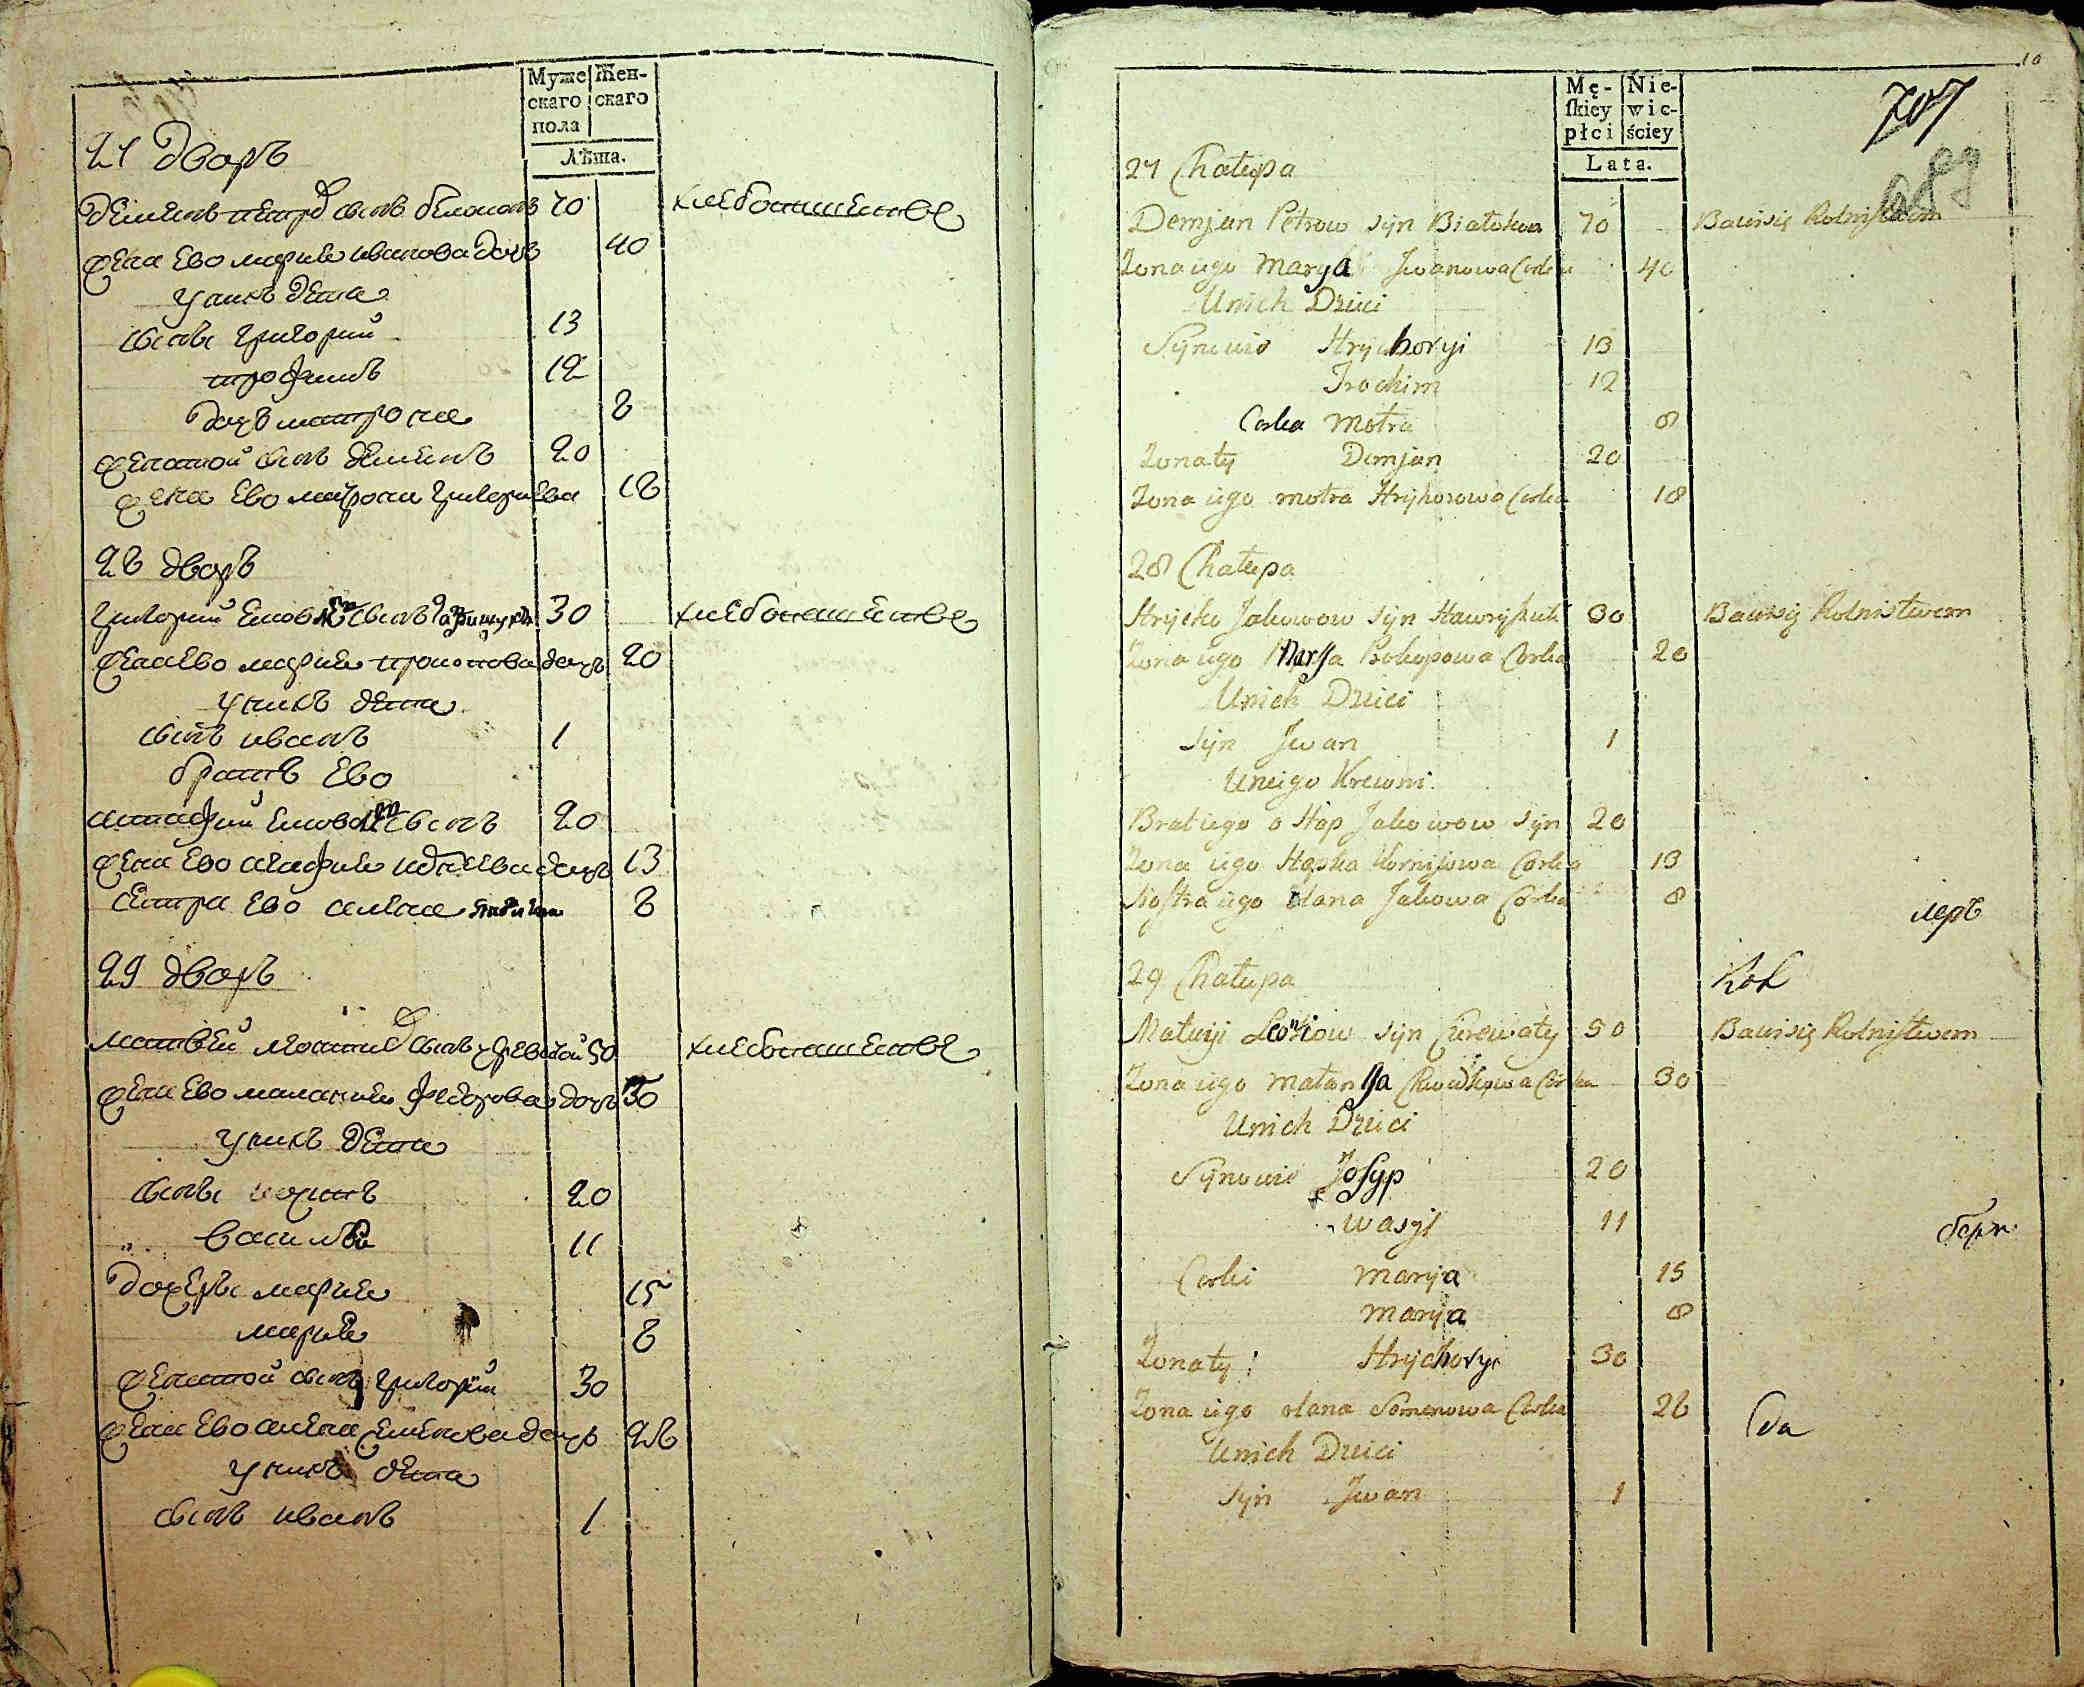 Муже
скаго
пола
Жен-
скаго
Лѣта.
27 Дворъ
Демьянъ петровъ сынъ белоконь 70 хлебопашествѣ
жена ево марья иванова дочь 40
у нихъ дети
сыны григорий 13
трофимъ 12
дочь матрона 8
женатой сынъ демьянъ 20
жена ево матрона григорьева 18
28 дворъ
григорий яковлевъ сынъ 30 хлебопашествѣ
жена ево марья прокопова дочь 20
у нихъ дети
сынъ иванъ 1
братъ ево
астафий яковлевъ сынъ 20
жена ево агафья дочь 13
сестра ево алена 8
29 дворъ
матвей сынъ 50 хлебопашествѣ
жена ево маланья федорова дочь 30
у нихъ дети
сыны 20
василей 11
дочери марья 15
марья 8
женатой сынъ григорий 30
жена ево алена семенова дочь 26
у нихъ дети
сынъ иванъ 1
10
Mę-
skiey
płci
Nie-
wie-
ściey
Lata.
707
89
27 Chałupa
Demjan Petrow syn Białokon 70 Bawi się Rolnistwem
Zona iego Marya Jwanowa Corka 40
U nich Dzieci
Synowie Hryhoryi 13
Trochim 12
Corka Motra 8
Zonaty Demjan 20
Zona iego motra Hryhorowa Corka 18
28 Chałupa
Hrycko Jakowow syn Hawryluk 30 Bawi się Rolnistwem
Zona iego Marya Prokopowa Corka 20
U nich Dzieci
Syn Jwan 1
U niego Krewni
Brat iego o Stap Jakowow syn 20
Zona iego Hapka Kornijowa Corka 13
Siostra iego Olana Jakowa Corka 8
29 Chałupa
Matwiji Leontiow syn Czerewaty 50 Bawi się Rolnistwem
Zona iego Małanya Chwedkowa Corka 30
U nich Dzieci
Synowie Josyp 20
Wasyl 11
Corki Marya 15
Marya 8
Zonaty: Hryhoryi 30
Zona iego olana Semenowa Corka 26
U nich Dzieci
Syn Jwan 1